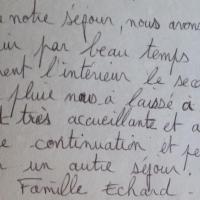 notre séjour, nous avons
par beau temps
l'intérieur le
pluie nous a laissé à
très accueillante et a
continuation et pe
un autre séjour.
Famille Echard -